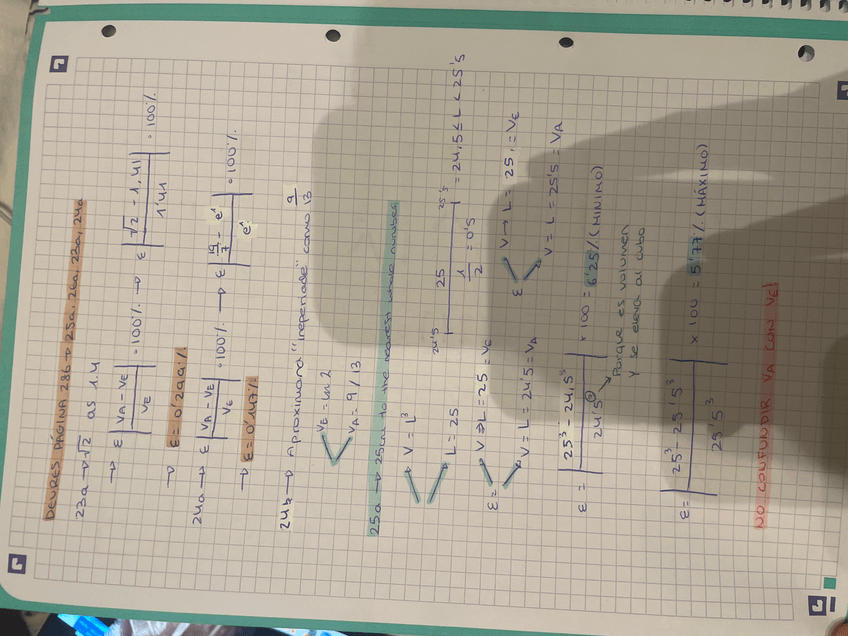 DEURES PÁGINA 286 → 25a, 26a, 23a, 24a
23a → √2 as 1.4
→ ε |VA - VE / VE| · 100% → ε |√2 - 1,41 / 1'41| · 100%
→ ε = 0'299%
24a → ε |VA - VE / VE| · 100% → ε |19/7 - e¹ / e¹| · 100%
→ ε = 0'147%
24b → Aproximara "inepenade" como 9/13
VE = ln 2
VA = 9/13
25a → 25cm to the nearest whole number
V = L³
L = 25
24'5 25 25'5 = 24,5 ≤ L < 25'5
1/2 = 0'5
ε = V → L = 25 = VE
V = L = 24'5 = VA
ε V → L = 25, = VE
V = L = 25'5 = VA
ε = |25³ - 24,5³ / 24'5³| × 100 = 6'25% (MÍNIMO)
Porque es volumen
y se eleva al cubo
ε = |25³ - 25'5³ / 25'5³| × 100 = 5'77% (MÁXIMO)
NO CONFUNDIR VA CON VE!